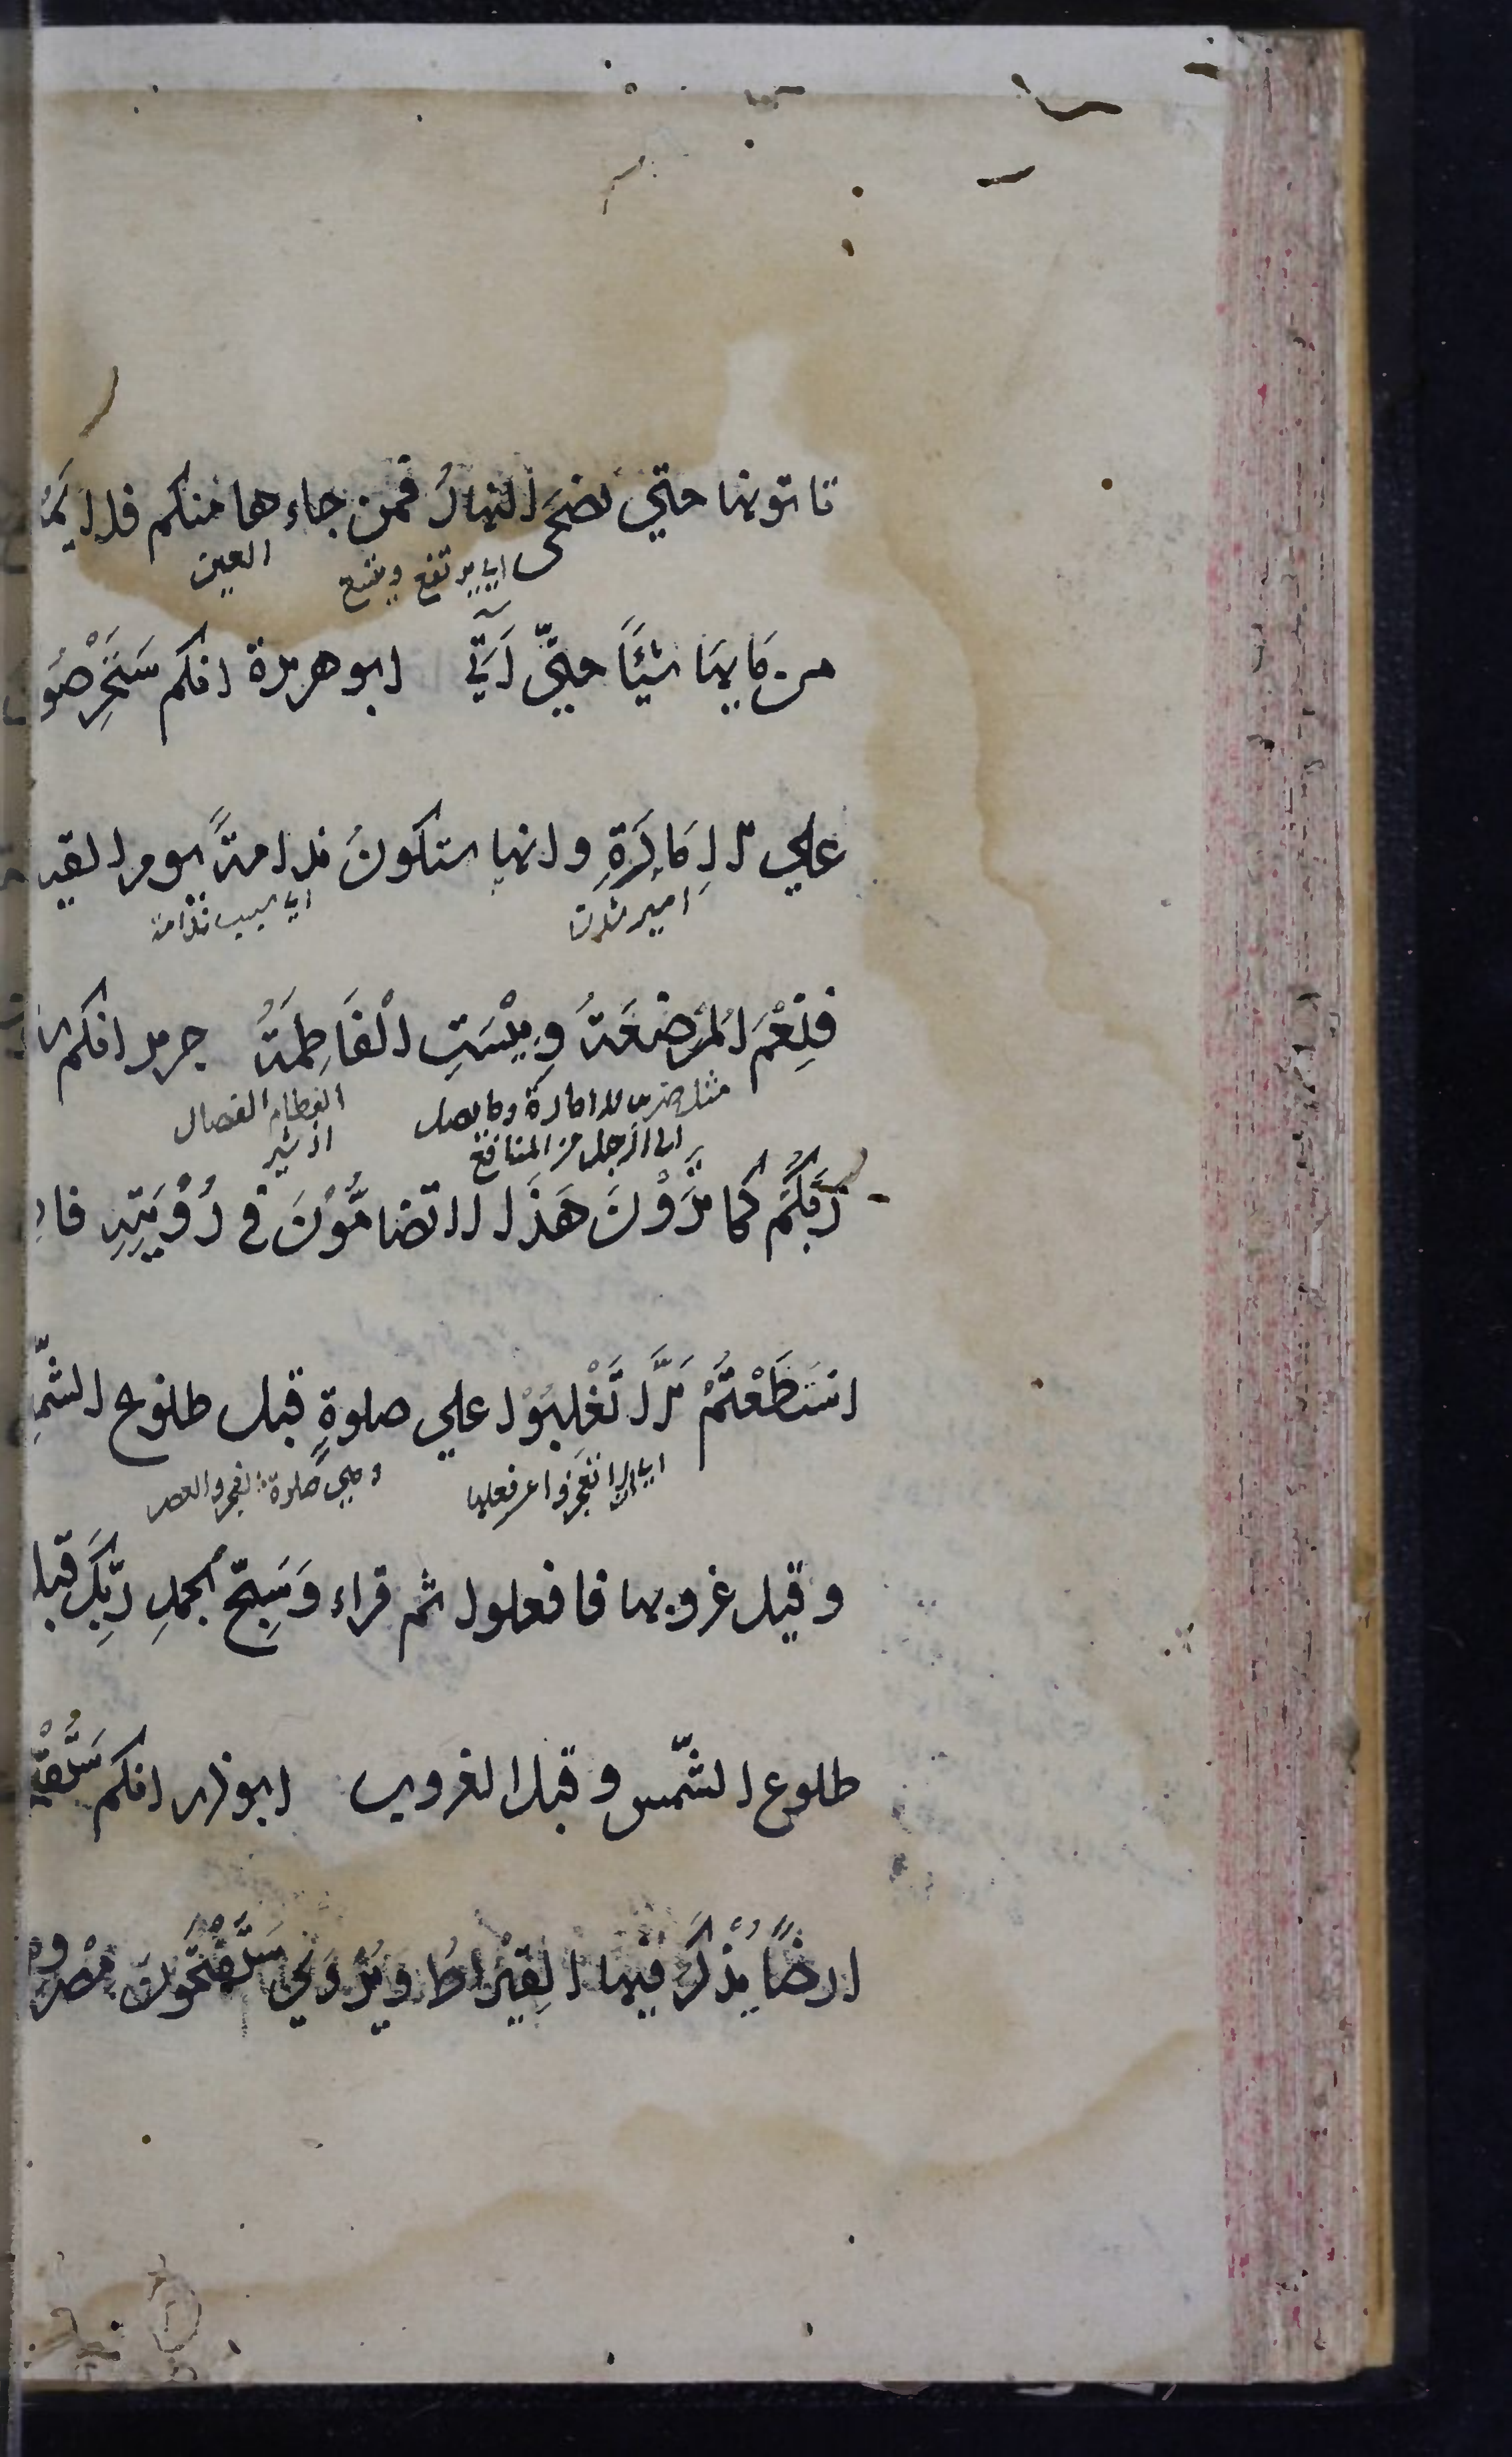 تاتونها حتي يضحَى النهارُ فمن جاءها منكم فلا يَمَ
اي يرتفع ويمتع
العين
من مَايهَا شئًا حتيّ آتي ابو هريرة انكم سَتَحْرِصُونَ
علي الاِمَارَةِ وانها ستكونُ ندامةً يوم القيـ
امير شدن
اي سبب ندامة
فنِعْمَ المُرْضِعَةُ وبِئْسَتِ الْفَاطِمَةُ جرير انكم
مثل ضرب للامارة وما يصل
الى الرجل من المنافع
الفطام الفصال
از شير
رَبَّكُم كما تَرَوْنَ هَذَا لا تضامُّوْنَ في رُؤْيَتِهِ فاِ
استَطَعْتُمْ اَلَّا تُغْلَبُوْا علي صلوةٍ قبل طلوع الشّمـ
اي
وهي صلوة الفجر والعصر
وقبل غروبها فافعلوا ثم قراء وَسَبِّحْ بحمدِ رَبِّكَ قبل
طلوع الشّمس وقبل الغروب ابوذر انكم
ارضًا يُذْكَرُ فيها القِيْرَاطُ ويُرْوَي سَتَفْتَحُونَ مِصْرَ وه